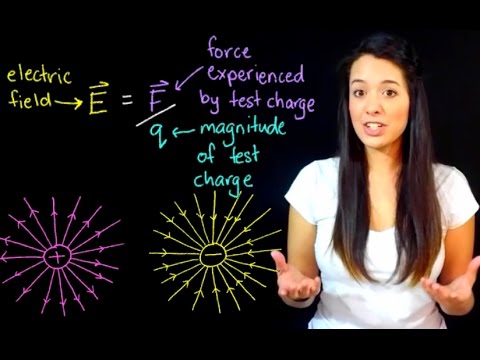 electric
field → E⃗ = F⃗ / q
force
experienced
by test charge
magnitude
of test
charge
+
−